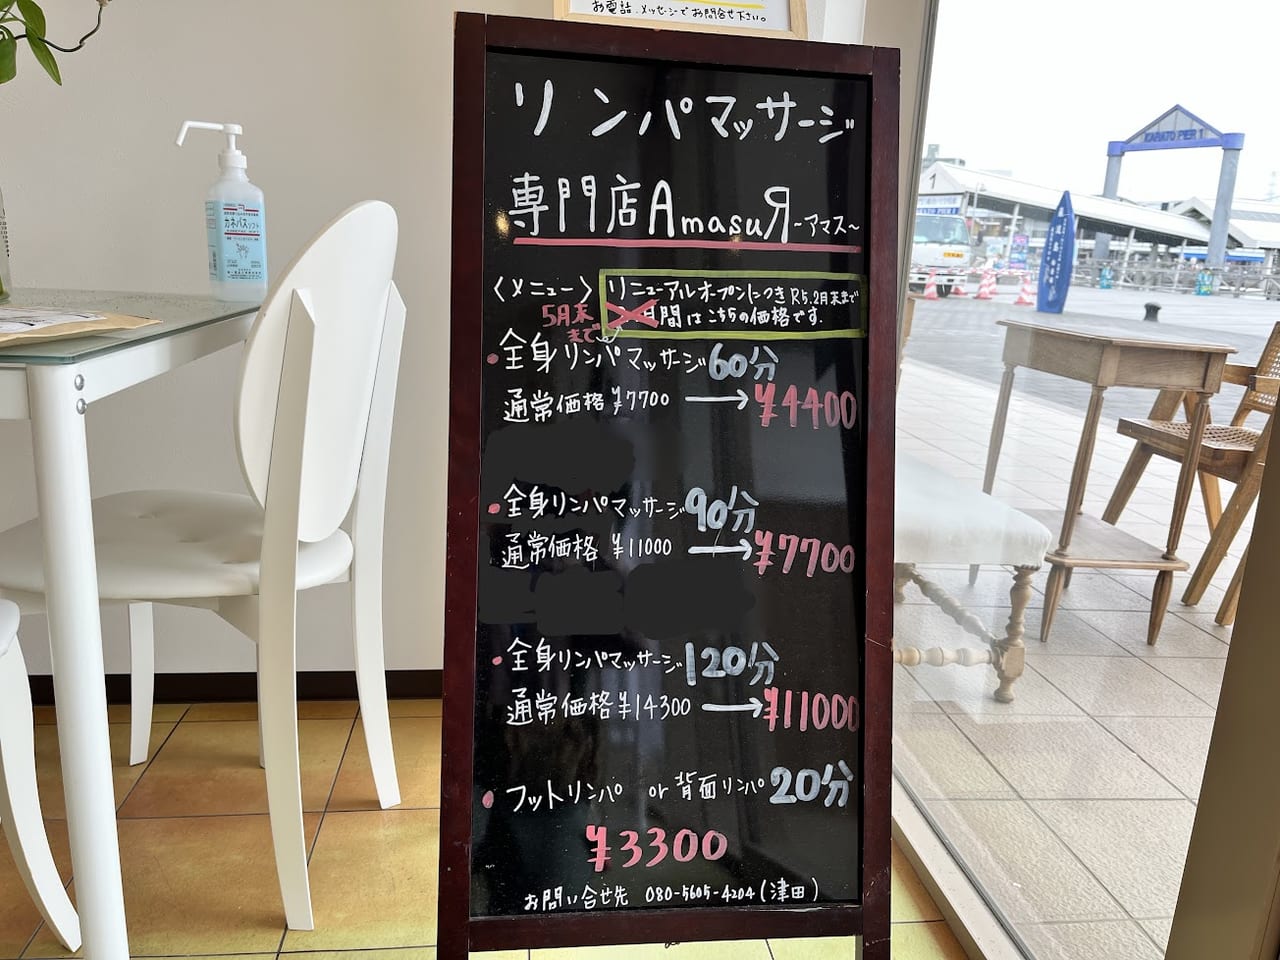 お電話、メッセージでお問合せ下さい。
リンパマッサージ
専門店AmasuЯ~アマス~
〈メニュー〉
リニューアルオープンにつきR5.2月末まで
月間はこちらの価格です.
5月末
まで
・全身リンパマッサージ60分
通常価格¥7700→¥4400
・全身リンパマッサージ90分
通常価格 ¥11000→¥7700
・全身リンパマッサージ120分
通常価格¥14300→¥11000
・フットリンパ or 背面リンパ20分
¥3300
お問い合せ先 080-5605-4204(津田)
カネパスソフト
KARATO PIER 1